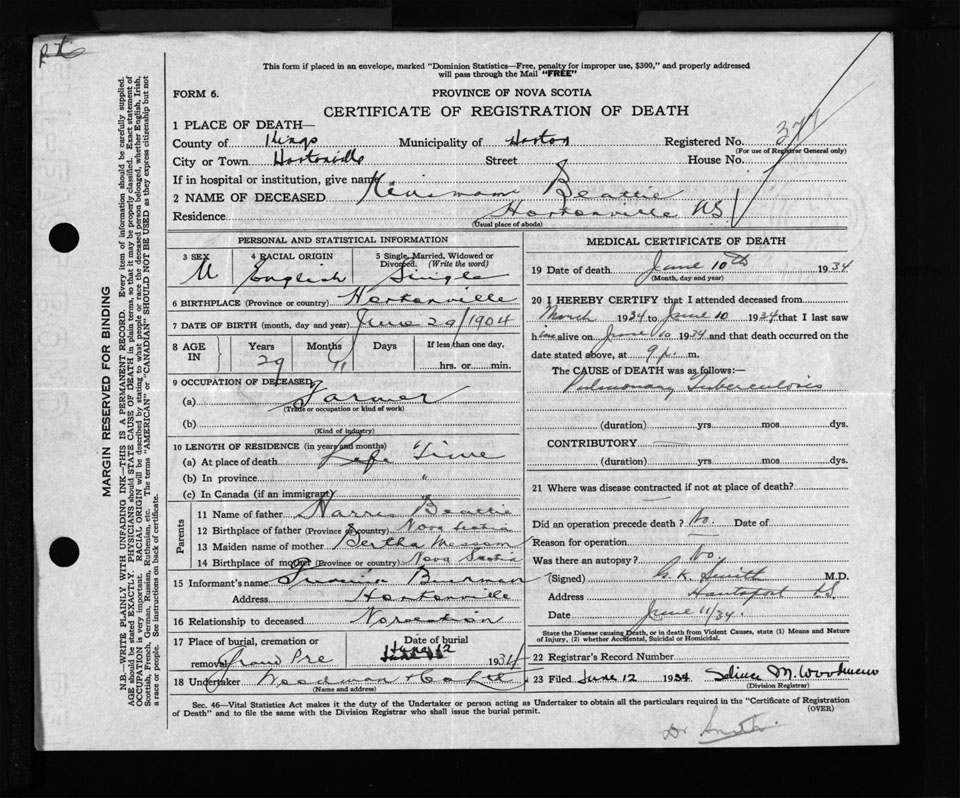 This form if placed in an envelope, marked "Dominion Statistics—Free, penalty for improper use, $300," and properly addressed
will pass through the Mail "FREE"
FORM 6.
PROVINCE OF NOVA SCOTIA
CERTIFICATE OF REGISTRATION OF DEATH
1 PLACE OF DEATH—
County of Kings Municipality of Horton Registered No.
(For use of Registrar General only)
City or Town Hortonville Street House No.
If in hospital or institution, give name
2 NAME OF DECEASED Beattie
Residence Hortonville N.S.
(Usual place of abode)
PERSONAL AND STATISTICAL INFORMATION
3 SEX 4 RACIAL ORIGIN 5 Single, Married, Widowed or Divorced. (Write the word)
M English Single
6 BIRTHPLACE (Province or country) Hortonville
7 DATE OF BIRTH (month, day and year) June 29/1904
8 AGE IN Years Months Days If less than one day,
29 11 hrs. or min.
9 OCCUPATION OF DECEASED
(a) Farmer
(Trade or occupation or kind of work)
(b)
(Kind of industry)
10 LENGTH OF RESIDENCE (in years and months)
(a) At place of death Life Time
(b) In province "
(c) In Canada (if an immigrant)
Parents
11 Name of father Harris Beattie
12 Birthplace of father (Province or country) Nova Scotia
13 Maiden name of mother Bertha
14 Birthplace of mother (Province or country) Nova Scotia
15 Informant's name
Address Hortonville
16 Relationship to deceased No relation
17 Place of burial, cremation or removal Grand Pre Date of burial June 12 1934
18 Undertaker Woodman
(Name and address)
MEDICAL CERTIFICATE OF DEATH
19 Date of death June 10th 1934
(Month, day and year)
20 I HEREBY CERTIFY that I attended deceased from
March 1934 to June 10 1934 that I last saw
him alive on June 10 1934 and that death occurred on the
date stated above, at 9 p. m.
The CAUSE of DEATH was as follows:—
Pulmonary Tuberculosis
(duration) yrs mos dys.
CONTRIBUTORY
(duration) yrs mos dys.
21 Where was disease contracted if not at place of death?
Did an operation precede death? No. Date of
Reason for operation
Was there an autopsy? No.
(Signed) G. K. Smith M.D.
Address Hantsport N.S.
Date June 11/34.
State the Disease causing Death, or in death from Violent Causes, state (1) Means and Nature
of Injury, (2) whether Accidental, Suicidal or Homicidal.
22 Registrar's Record Number
23 Filed June 12 1934 M. Woodman
(Division Registrar)
Sec. 46—Vital Statistics Act makes it the duty of the Undertaker or person acting as Undertaker to obtain all the particulars required in the "Certificate of Registration
of Death" and to file the same with the Division Registrar who shall issue the burial permit.
(OVER)
Dr Smith
MARGIN RESERVED FOR BINDING
N.B.—WRITE PLAINLY WITH UNFADING INK—THIS IS A PERMANENT RECORD. Every item of information should be carefully supplied.
AGE should be stated EXACTLY. PHYSICIANS should STATE CAUSE OF DEATH in plain terms, so that it may be properly classified. Exact statement of
OCCUPATION is very important. RACIAL ORIGIN will be described by stating to what people or race the deceased person belonged, whether English, Irish,
Scottish, French, German, Russian, Ruthenian, etc. The terms "AMERICAN" or "CANADIAN" SHOULD NOT BE USED as they express citizenship but not
a race or people. See instructions on back of certificate.